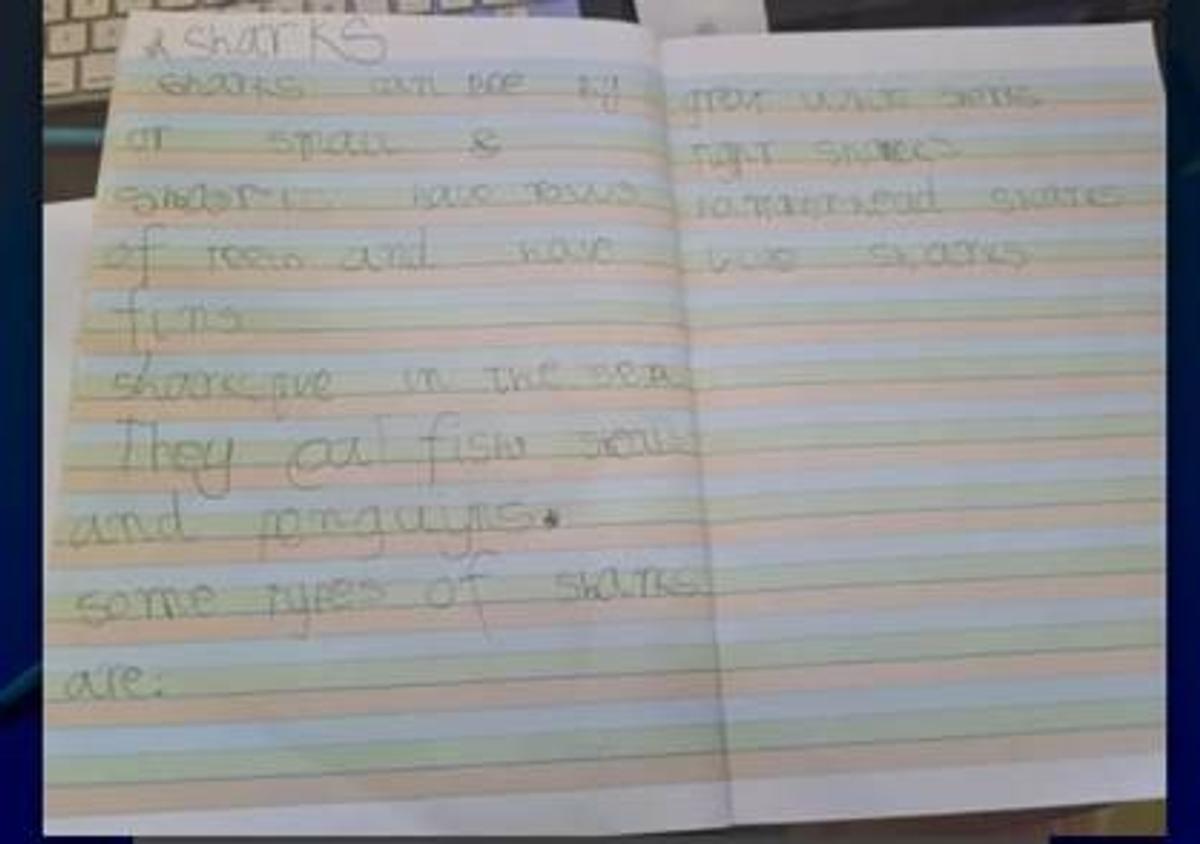 sharks
sharks can be big
or small &
sharks have rows
of teeth and have
fins
shark live in the sea
They eat fish
and penguyns.
some types of sharks
are:
great white
tiger sharks
hammerhead sharks
sharks